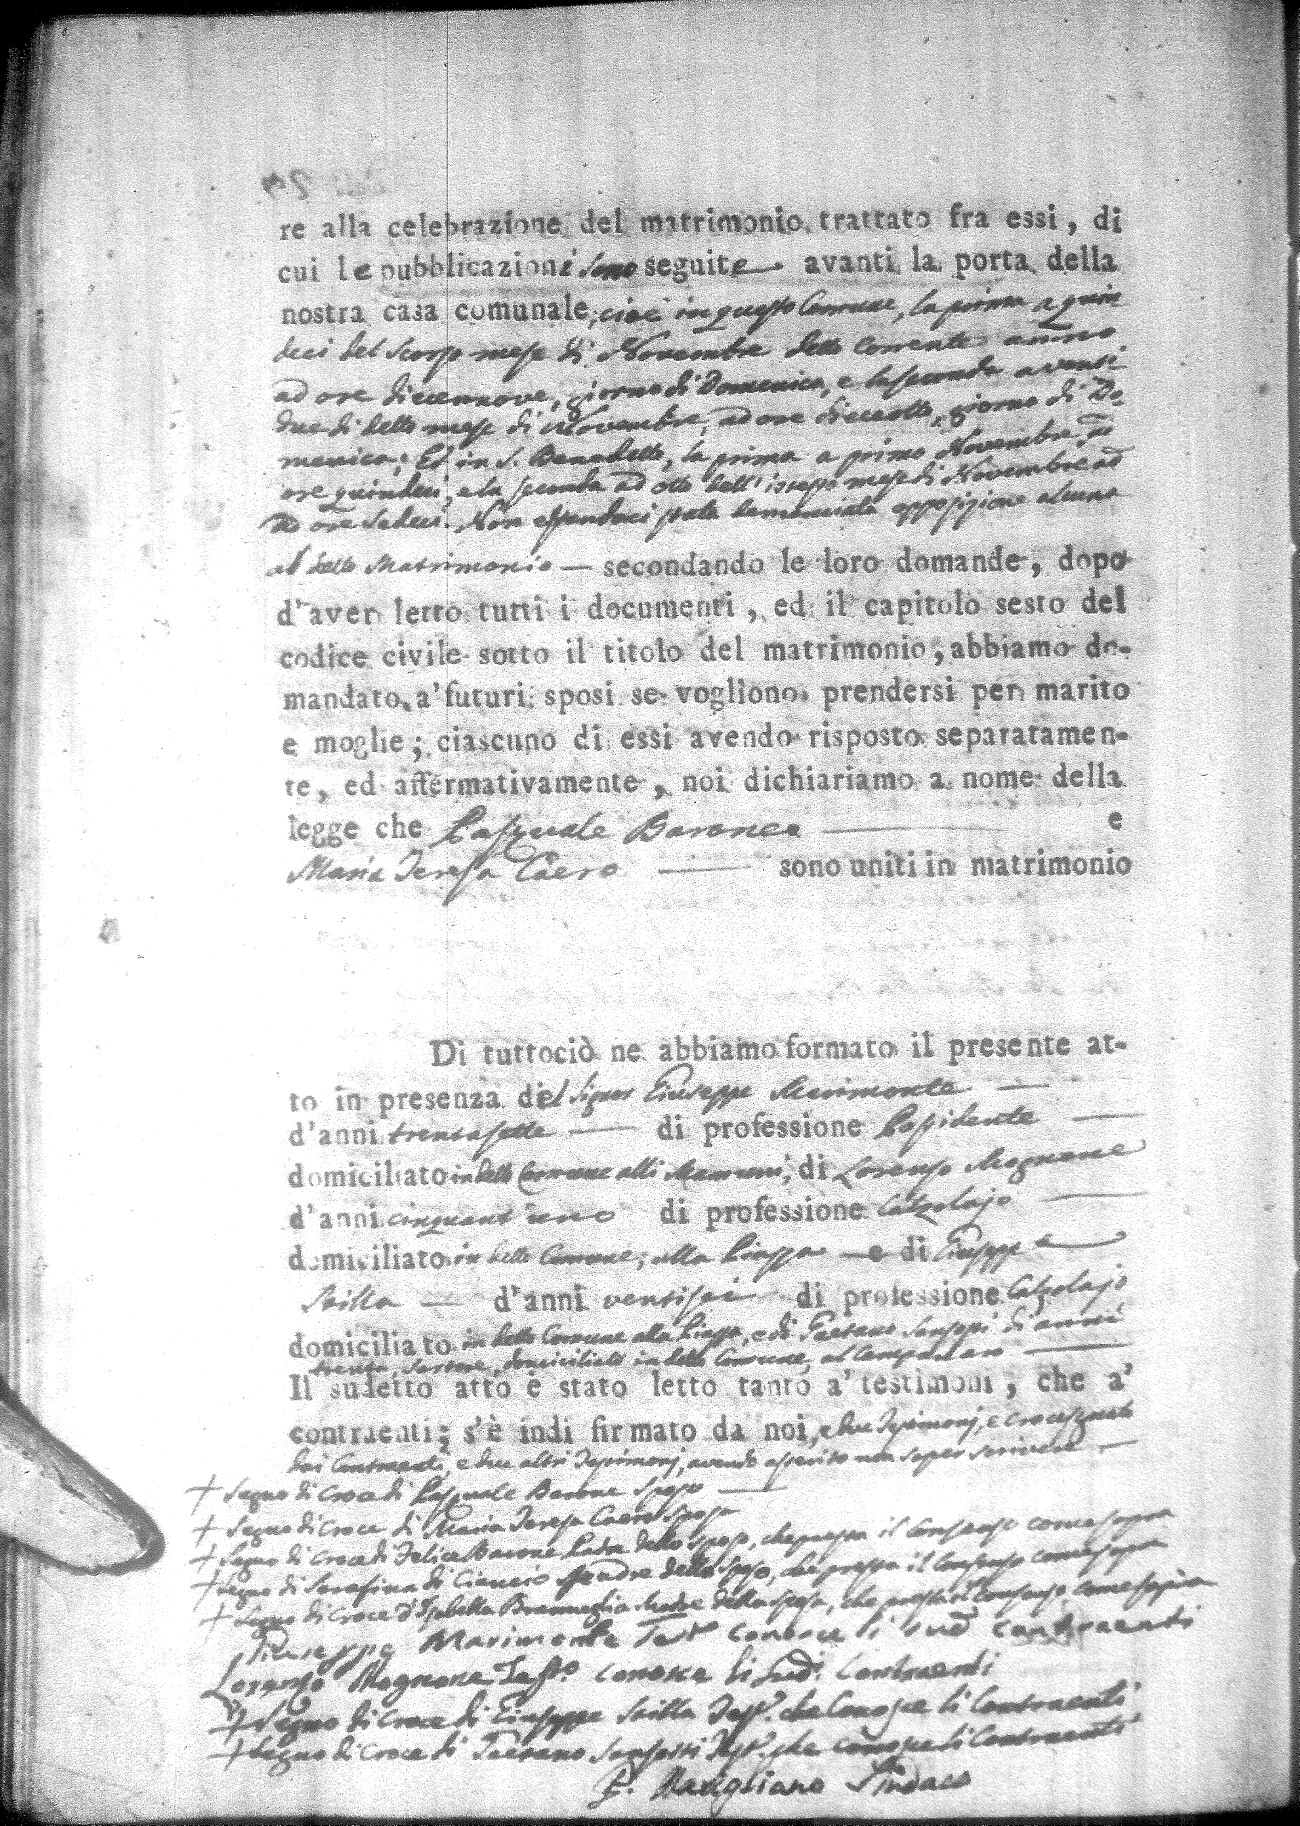 re alla celebrazione del matrimonio trattato fra essi, di
cui le pubblicazioni sono seguite avanti la porta della
nostra casa comunale, cioè in questo Comune, la prima a quin
deci del scorso mese di Novembre detto corrente anno
ad ore diecennove, giorno di Domenica, e la seconda a venti
due di detto mese di Novembre, ad ore dieciotto, giorno di Do=
menica; Et in S. Benedetto, la prima a primo Novembre, ad
ore quindeci, e la seconda ad otto dell' istesso mese di Novembre ad
ad ore sedeci. Non essendoci stata denunciata opposizione alcuna
al detto Matrimonio — secondando le loro domande, dopo
d'aver letto tutti i documenti, ed il capitolo sesto del
codice civile sotto il titolo del matrimonio, abbiamo do-
mandato a' futuri sposi se vogliono prendersi per marito
e moglie; ciascuno di essi avendo risposto separatamen-
te, ed affermativamente, noi dichiariamo a nome della
legge che Pasquale Barone — e
Maria Teresa Caero — sono uniti in matrimonio
Di tuttociò ne abbiamo formato il presente at-
to in presenza del Signor Giuseppe Marimonte —
d'anni trentasette — di professione Possidente —
domiciliato in detto Comune alli, di Lorenzo Magnone
d'anni cinquant'uno di professione Calzolajo —
domiciliato in detto Comune, alla Piazza — e di Giuseppe
Scilla — d'anni ventisei di professione Calzolajo
domiciliato in detto Comune alla Piazza, e di Gaetano d'anni
trenta, Sartore, domiciliato in detto Comune, al
Il sudetto atto è stato letto tanto a' testimoni, che a'
contraenti; s'è indi firmato da noi, e due Testimonj, e crocesegnato
dai Contraenti, e due altri Testimonj, avendo asserito non saper scrivere —
+ Segno di Croce di Pasquale Barone Sposo —
+ Segno di Croce di Maria Teresa Caero Sposa
+ Segno di Croce di Felice Barone Padre dello Sposo, che presta il Consenso come sopra
+ Segno di Serafina di Ciancio Madre dello Sposo, che presta il Consenso come sopra
+ Segno di Croce d'Isabella Madre della Sposa, che presta il Consenso come sopra
Giuseppe Marimonte Test.o conosce li sud.i contraenti
Lorenzo Magnone Test.o conosce li sud.i Contraenti
+ Segno di Croce di Giuseppe Scilla Test.o che conosce li Contraenti
+ Segno di Croce di Gaetano Test.o che conosce li Contraenti
Sindaco